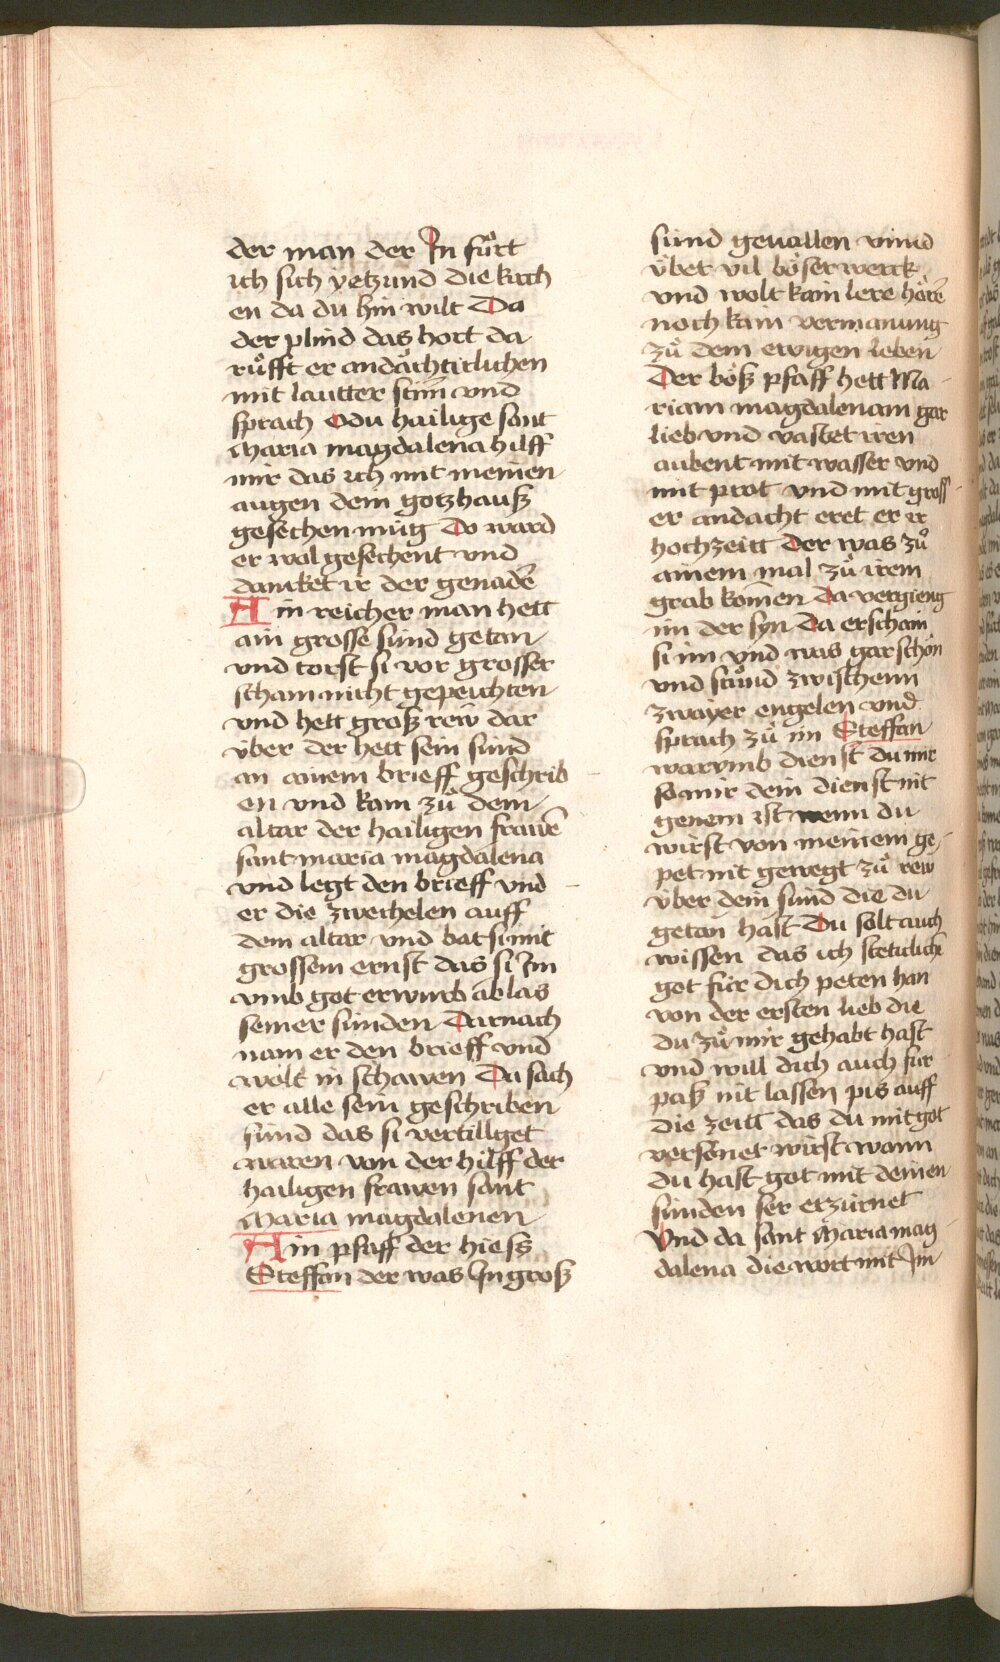 der man der In fuͤrt
ich sich yetzund die kirch
en da du hin wilt Da
der plind das hort da
ruͦfft er andaͤchtitlichen
mit lautter stim̄ vnd
sprach O du hailige sant
Maria magdalena hilff
mir das ich mit meinen
augen dein gotzhauß
gesechen mug Do ward
er wol gesechent vnd
dancket ir der genadē
Ain reicher man hett
ain grosse sund getan
vnd torst si vor grosser
scham nicht gepeichten
vnd hett groß rew dar
vber der hett sein sund
an ainem brieff geschrib
en vnd kam zuͦ dem
altar der hailigen frawē
sant maria magdalena
vnd legt den brieff vnd
er die zwechelen auff
dem altar vnd bat si mit
grossem ernst das si Im
vmb got erwurb ablas
seiner sunden Darnach
nam er den brieff vnd
wolt in schawen Da sach
er alle sein geschriben
sund das si vertillget
waren von der hilff der
hailigen frawen sant
Maria magdalenen
Ain pfaff der hiess
Steffan der was In groß
sund geuallen vnnd
vbet vil boͤser werck
vnd wolt kain lere hoͤrē
noch kain vermanung
zuͦ dem ewigen leben
Der boͤß pfaff hett Ma
riam magdalenam gar
lieb vnd vastet iren
aubent mit wasser vnd
mit prot vnd mit gross
er andacht eret er ir
hochzeitt Der was zuͦ
ainem mal zuͦ irem
grab komen Da vergieng
im der syn Da erschain
si im vnd was gar schoͤn
vnd stuͦnd zwischenn
zwayer engelen vnd
sprach zuͦ im Steffan
warvmb dienst du mir
so mir dein dienst nit
genem ist wenn du
wirst von meinem ge
pet nit gewegt zuͦ rew
vber dein sund die du
getan hast Du solt auch
wissen das ich stetticlichē
got fur dich peten han
von der ersten lieb die
du zuͦ mir gehabt hast
vnd will dich auch fur
paß nit lassen pis auff
die zeitt das du mit got
versonet wirst wann
du hast got mit deinen
sunden ser erzurnet
Vnd da sant Maria mag
dalena die wort mit Im